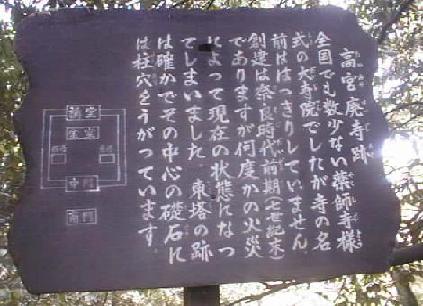 高宮廃寺跡
全国でも数少ない薬師寺様
式の大寺院でしたが寺の名
前ははっきりしていません
創建は奈良時代前期(七世紀末)
でありますが何度かの火災
によって現在の状態になっ
てしまいました 東塔の跡
は確かでその中心の礎石に
は柱穴をうがっています
講堂
金堂
中門
南門